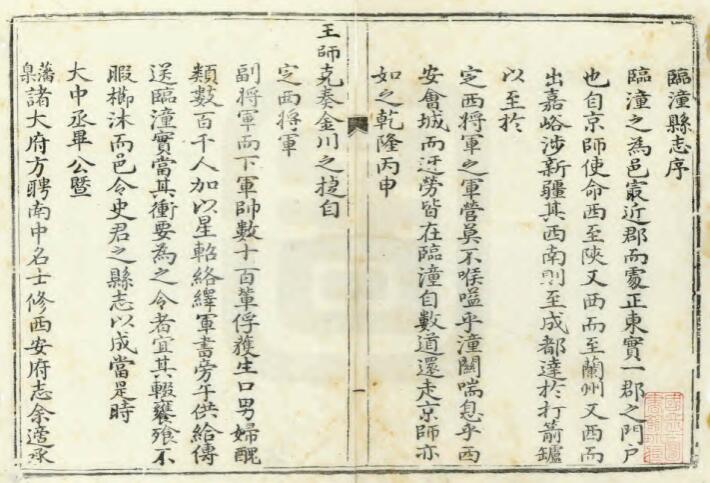 臨潼縣志序
臨潼之為邑冣近郡而處正東實一郡之門戸
也自京師使命西至陝又西而至蘭州又西而
出嘉峪涉新疆其西南則至成都達於打箭鑪
以至於
定西將軍之軍營莫不喉嗌乎潼關喘息乎西
安會城而迓勞皆在臨潼自數道還走京師亦
如之乾隆丙申
王師克奏金川之捷自
定西將軍
副將軍而下軍帥數十百輩俘獲生口男婦醜
類數百千人加以星軺絡繹軍書旁午供給傳
送臨潼實當其衝要為之令者宜其輟饔飱不
暇櫛沐而邑令史君之縣志以成當是時
大中丞畢公暨
藩臬諸大府方聘南中名士修西安府志余適承
一